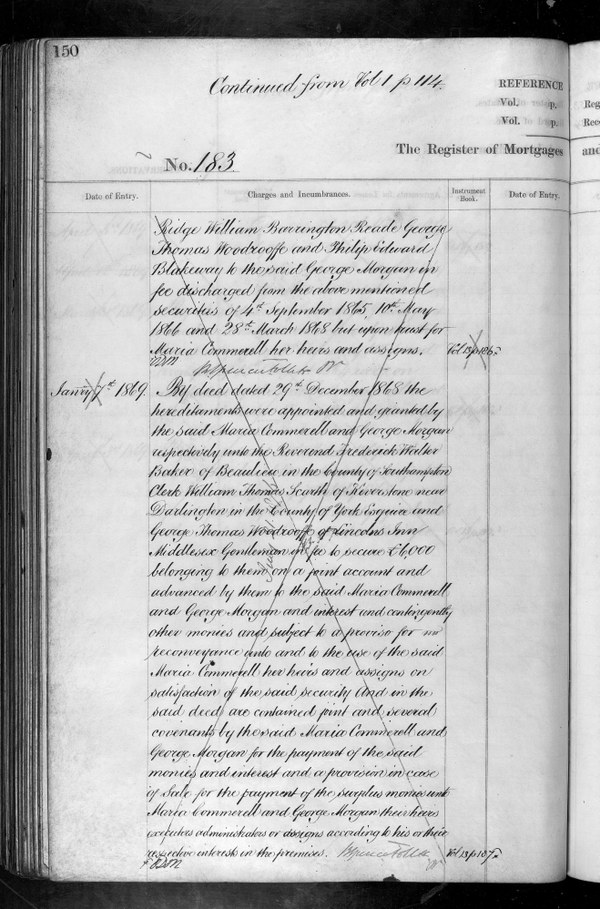 150
Continued from Vol 1 p 114.
REFERENCE
Vol. p.
Vol. p.
Reg
Rece
The Register of Mortgages
and
No. 183
Date of Entry.
Charges and Incumbrances.
Instrument Book.
Date of Entry.
Ridge William Barrington Reade George
Thomas Woodrooffe and Philip Edward
Blakeway to the said George Morgan in
fee discharged from the above mentioned
securities of 4th September 1865, 10th May
1866 and 28th March 1868 but upon trust for
Maria Commerell her heirs and assigns.
Vol 13 p
Janry 7th 1869.
By deed dated 29th December 1868 the
hereditaments were appointed and granted by
the said Maria Commerell and George Morgan
respectively unto the Reverend Frederick Walter
Baker of Beaulieu in the County of Southampton
Clerk William Thomas Scurth of Keverstone near
Darlington in the County of York Esquire and
George Thomas Woodrooffe of Lincolns Inn
Middlesex Gentleman in fee to secure £6,000
belonging to them on a joint account and
advanced by them to the said Maria Commerell
and George Morgan and interest and contingently
other monies and subject to a proviso for
reconveyance unto and to the use of the said
Maria Commerell her heirs and assigns on
satisfaction of the said security And in the
said deed are contained joint and several
covenants by the said Maria Commerell and
George Morgan for the payment of the said
monies and interest and a provision in case
of Sale for the payment of the surplus monies unto
Maria Commerell and George Morgan their heirs
executors administrators or assigns according to his or their
respective interests in the premises.
Vol 13 p 187